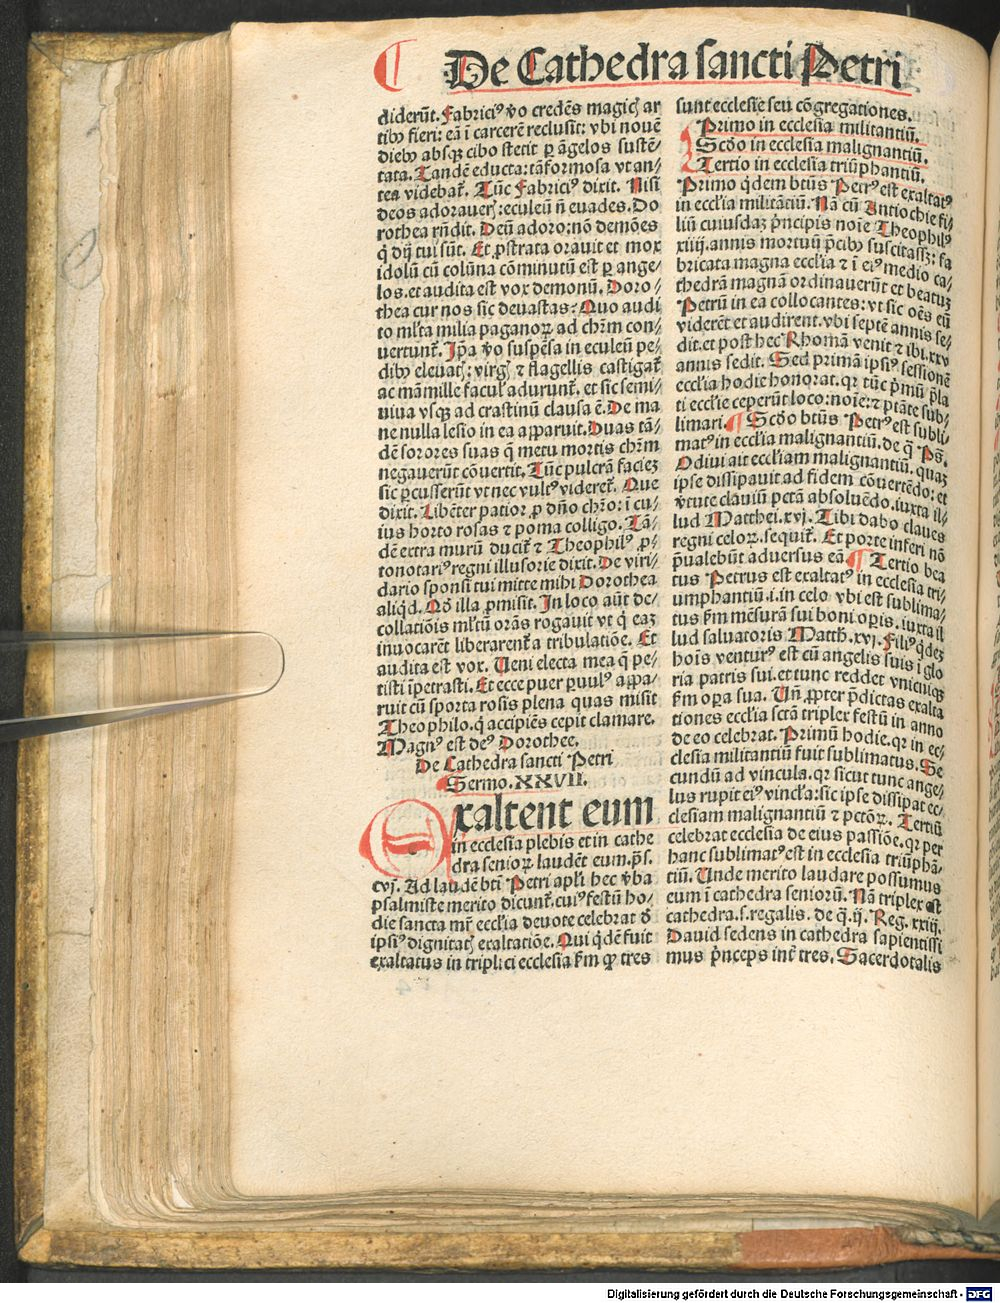 De Cathedra sancti Petri
diderūt. Fabriciꝰ v̓o credēs magicꝭ ar
tibꝰ fieri: eā i carcerē reclusit: vbi nouē
diebꝰ absqꝫ cibo stetit ꝑ āgelos sustē-
tata. Tandē educta: tā formosa vt an-
tea videbaṫ. Tūc Fabriciꝰ dixit. Nisi
deos adoraueꝭ: eculeū ñ euades. Do
rothea rñdit. Deū adoro: nō demōes
q̄ dij tui sūt. Et ꝓstrata orauit et mox
idolū cū colūna cōminutū est ꝑ ange-
los. et audita est vox demonū. Doro-
thea cur nos sic deuastas? Quo audi
to ml̓ta milia paganoꝝ ad chr̄m con-
uertunt̓. Ip̄a v̓o suspēsa in eculeū pe-
dibꝰ eleuatꝭ: virgꝭ ⁊ flagellis castigat̓
ac māmille facul̓ adurunt̓. et sic semi-
uiua vsqꝫ ad crastinū clausa ē. De ma
ne nulla lesio in ea apparuit. Duas tā-
dē sorores suas q̄ metu mortis chr̄m
negauerūt cōuertit. Tūc pulcrā faciēꝫ
sic ꝑcusserūt vt nec vultꝰ videret̓. Que
dixit. Libēter patior ꝓ dño chr̄o: i cu-
ius horto rosas ⁊ poma colligo. Tā-
dē extra murū ducit̓ ⁊ Theophilꝰ ꝓ-
tonotariꝰ regni illusorie dixit. De viri-
dario sponsi tui mitte mihi Dorothea
aliqd. Qd̓ illa ꝓmisit. In loco aūt de-
collatiōis ml̓tū orās rogauit vt q̄ eaꝫ
inuocarēt liberarent̓ a tribulatiōe. Et
audita est vox. Ueni electa mea q̄ pe-
tisti īpetrasti. Et ecce puer ꝑuulꝰ appa-
ruit cū sporta rosis plena quas misit
Theophilo. q̄ accipiēs cepit clamare.
Magnꝰ est deꝰ Dorothee.
De Cathedra sancti Petri
Sermo. XXVII.
Exaltent eum
in ecclesia plebis et in cathe
dra senioꝝ laudēt eum. p̄s.
cvj. Ad laudē bti̓ Petri apl̓i hec v̓ba
psalmiste merito dicunt̓. cuiꝰ festū ho-
die sancta mr̄ eccl̓ia deuote celebrat d̓
ipsiꝰ dignitatꝭ exaltatiōe. Qui q̓dē fuit
exaltatus in triplici ecclesia ẜm ꝙ tres
sunt ecclesie seu cōgregationes.
Primo in ecclesia militantiū.
Scd̓o in ecclesia malignantiū.
Tertio in ecclesia triūphantiū.
Primo q̓dem btūs Petrꝰ est exaltatꝰ
in eccl̓ia militātiū. Nā cū Antiochie fi-
liū cuiusdaꝫ p̓ncipis noīe Theophilꝰ
xiiij. annis mortuū p̄cibꝰ suscitasꝫ: fa
bricata magna eccl̓ia ⁊ ī eiꝰ medio ca-
thedrā magnā ordinauerūt et beatuꝫ
Petrū in ea collocantes: vt sic oēs eū
viderēt et audirent. vbi septē annis se-
dit. et post hec Rhomā venit ⁊ ibi. xxv
annis sedit. Sed primā ipsiꝰ sessionē
eccl̓ia hodie honorat. qꝛ tūc p̓mū p̄la
ti eccl̓ie ceperūt loco: noīe: ⁊ ptāte sub-
limari. Scd̓o btūs Petrꝰ est subli-
matꝰ in eccl̓ia malignantiū. de q̄ Ps.
Odiui ait eccl̓iam malignantiū. quaꝫ
ipse dissipauit ad fidem cōuertēdo: et
v̓tute clauiū pctā absoluēdo. iuxta il-
lud Matthei. xvj. Tibi dabo claues
regni celoꝝ. sequit̓. Et porte inferi nō
p̄ualebūt aduersus eā Tertio bea
tus Petrus est exaltatꝰ in ecclesia tri-
umphantiū. i. in celo vbi est sublima-
tus ẜm mēsurā sui boni oꝑis. iuxta il
lud saluatoris Matth̓. xvj. Filiꝰ q̓deꝫ
hoīs venturꝰ est cū angelis suis ī glo
ria patris sui. et tunc reddet vnicuiqꝫ
ẜm oꝑa sua. Uñ ꝓpter p̓dictas exalta
tiones eccl̓ia sctā triplex festū in anno
de eo celebrat. Primū hodie. qꝛ in ec-
clesia militantiū fuit sublimatus. Se
cundū ad vincula. qꝛ sicut tunc ange-
lus rupit eiꝰ vincl̓a: sic ipse dissipat ec-
clesiam malignantiū ⁊ pctōꝝ. Tertiū
celebrat ecclesia de eius passiōe. qꝛ per
hanc sublimatꝰ est in ecclesia triūphā-
tiū. Unde merito laudare possumus
eum ī cathedra senioꝝ. Nā triplex est
cathedra. s. regalis. de q̄. ij. Reg. xxiij.
Dauid sedens in cathedra sapientissi
mus p̓nceps int̓ tres. Sacerdotalis
Digitalisierung gefördert durch die Deutsche Forschungsgemeinschaft - DFG